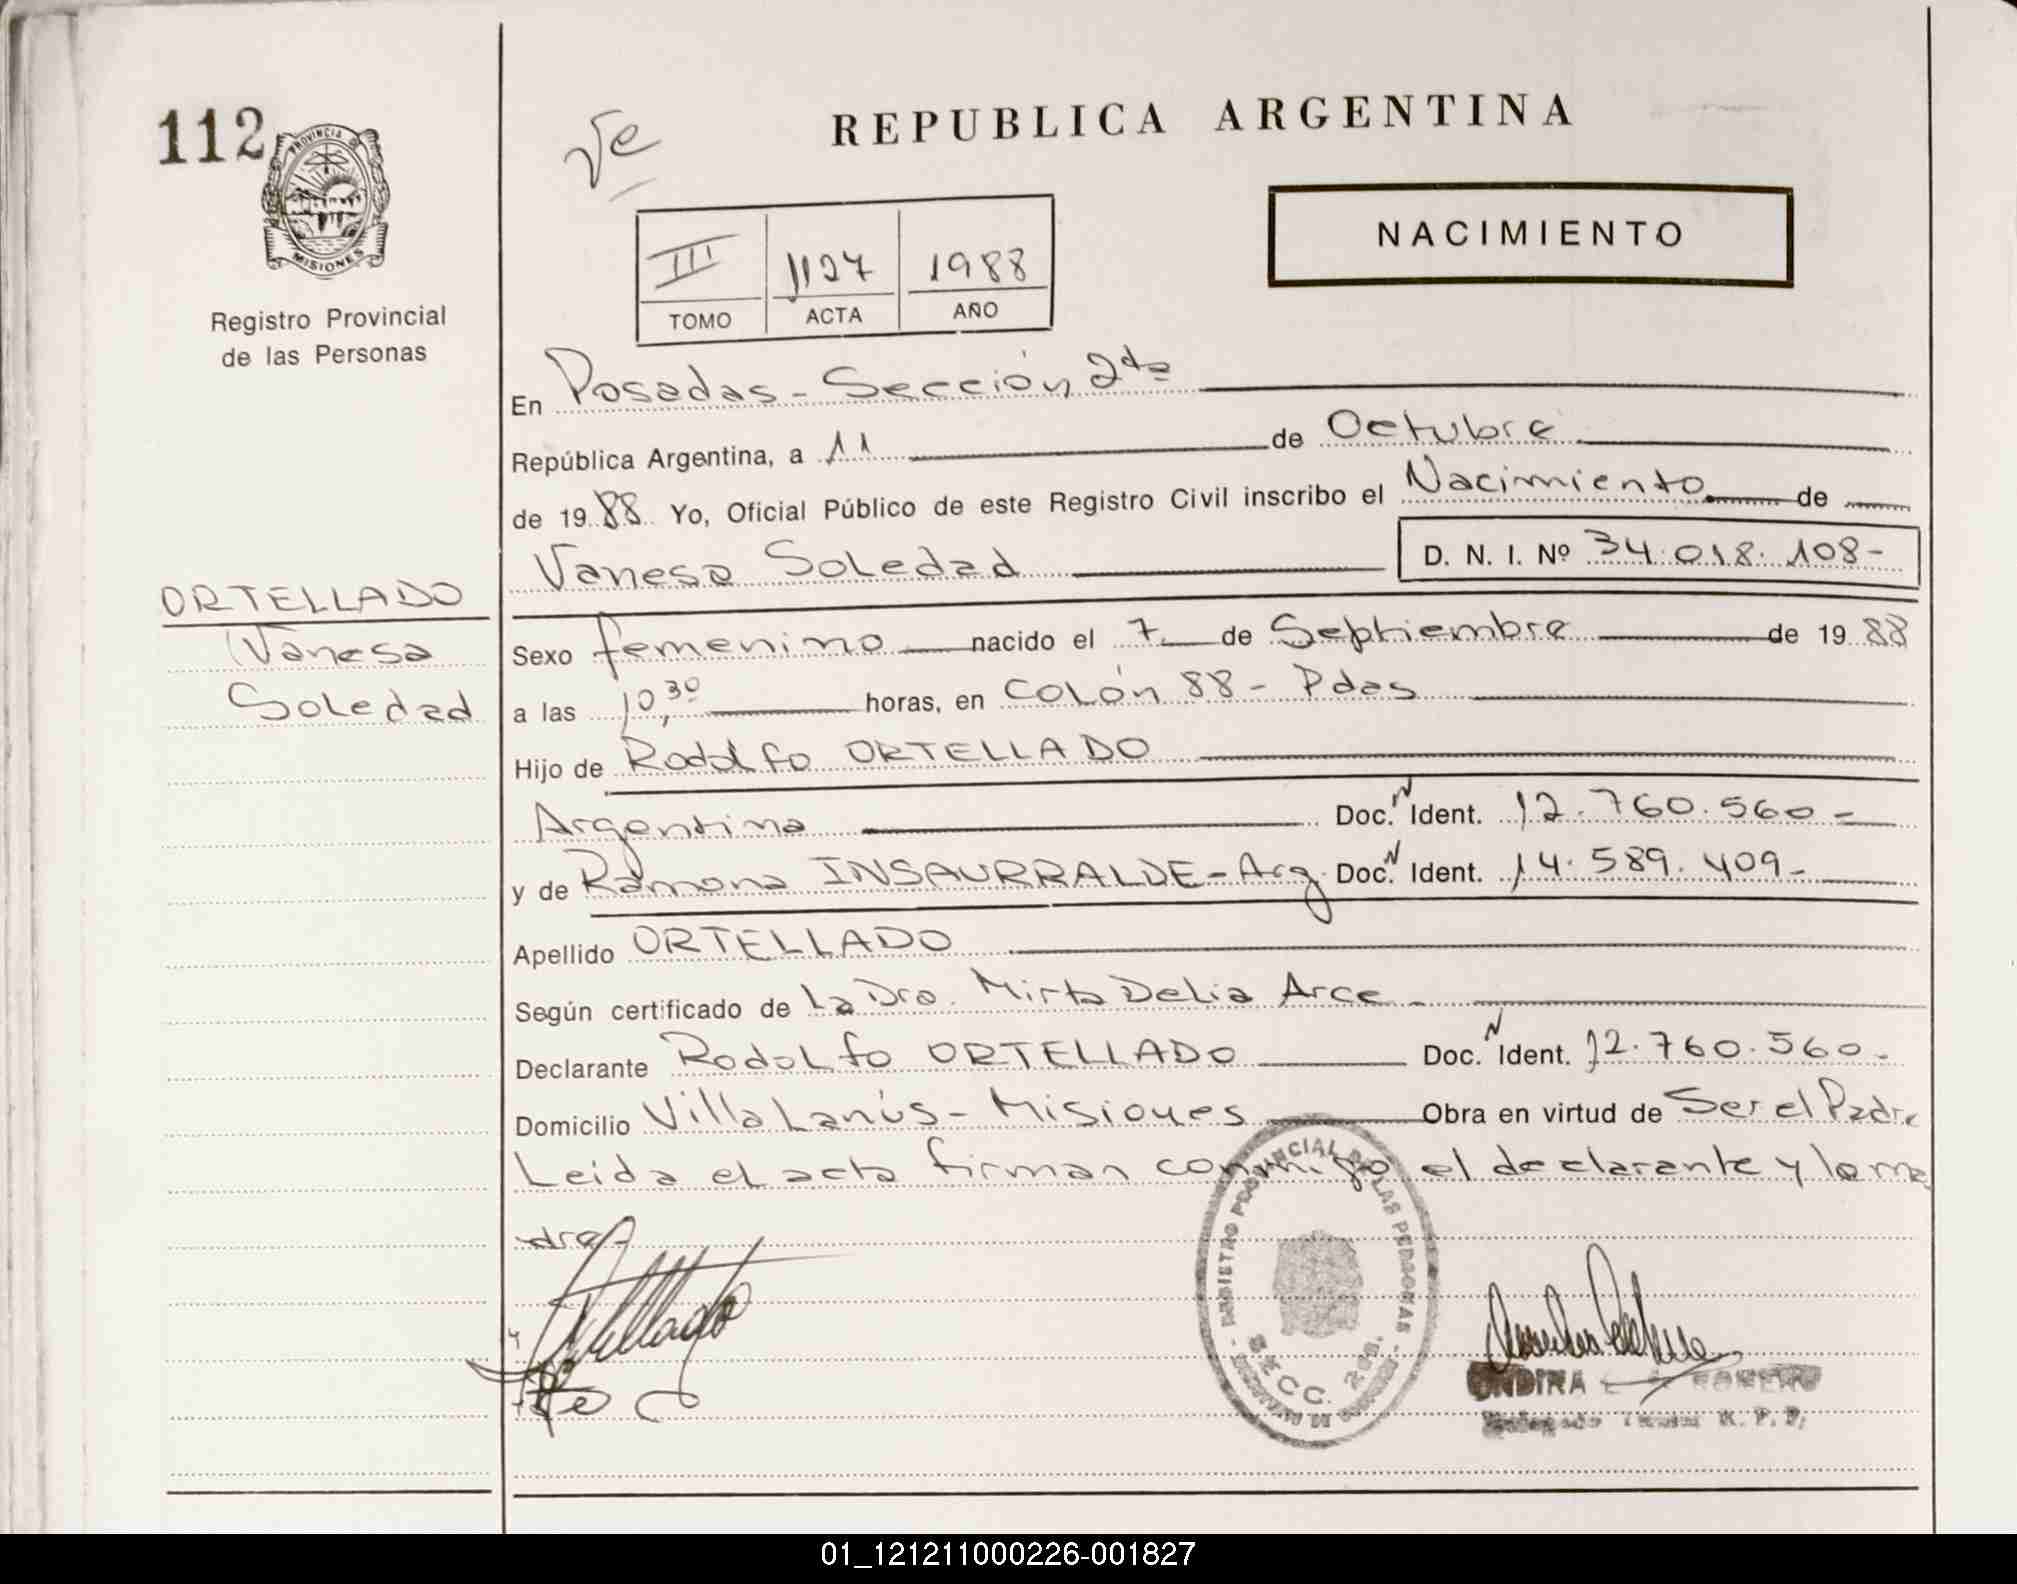 112
PROVINCIA DE
MISIONES
Registro Provincial
de las Personas
ORTELLADO
Vanesa
Soledad
Ve
REPUBLICA ARGENTINA
NACIMIENTO
III 1127 1988
TOMO ACTA AÑO
En Posadas - Sección 2da
República Argentina, a 11 de Octubre
de 1988 Yo, Oficial Público de este Registro Civil inscribo el Nacimiento de
Vanesa Soledad D. N. I. Nº 34.018.108-
Sexo femenino nacido el 7 de Septiembre de 1988
a las 10,30 horas, en Colón 88 - Pdas
Hijo de Rodolfo ORTELLADO
Argentina Doc. N Ident. 12.760.560-
y de Ramona INSAURRALDE - Arg. Doc. N Ident. 14.589.409-
Apellido ORTELLADO
Según certificado de La Dra. Mirta Delia Arce
Declarante Rodolfo ORTELLADO Doc. N Ident. 12.760.560-
Domicilio Villa Lanús - Misiones Obra en virtud de Ser el Padre
Leida el acta firman conmigo el declarante y la ma
dre
REGISTRO PROVINCIAL DE LAS PERSONAS
SECC. 2da.
Ortellado
ONDINA ROMERO
Delegado R. P. P.
01_121211000226-001827